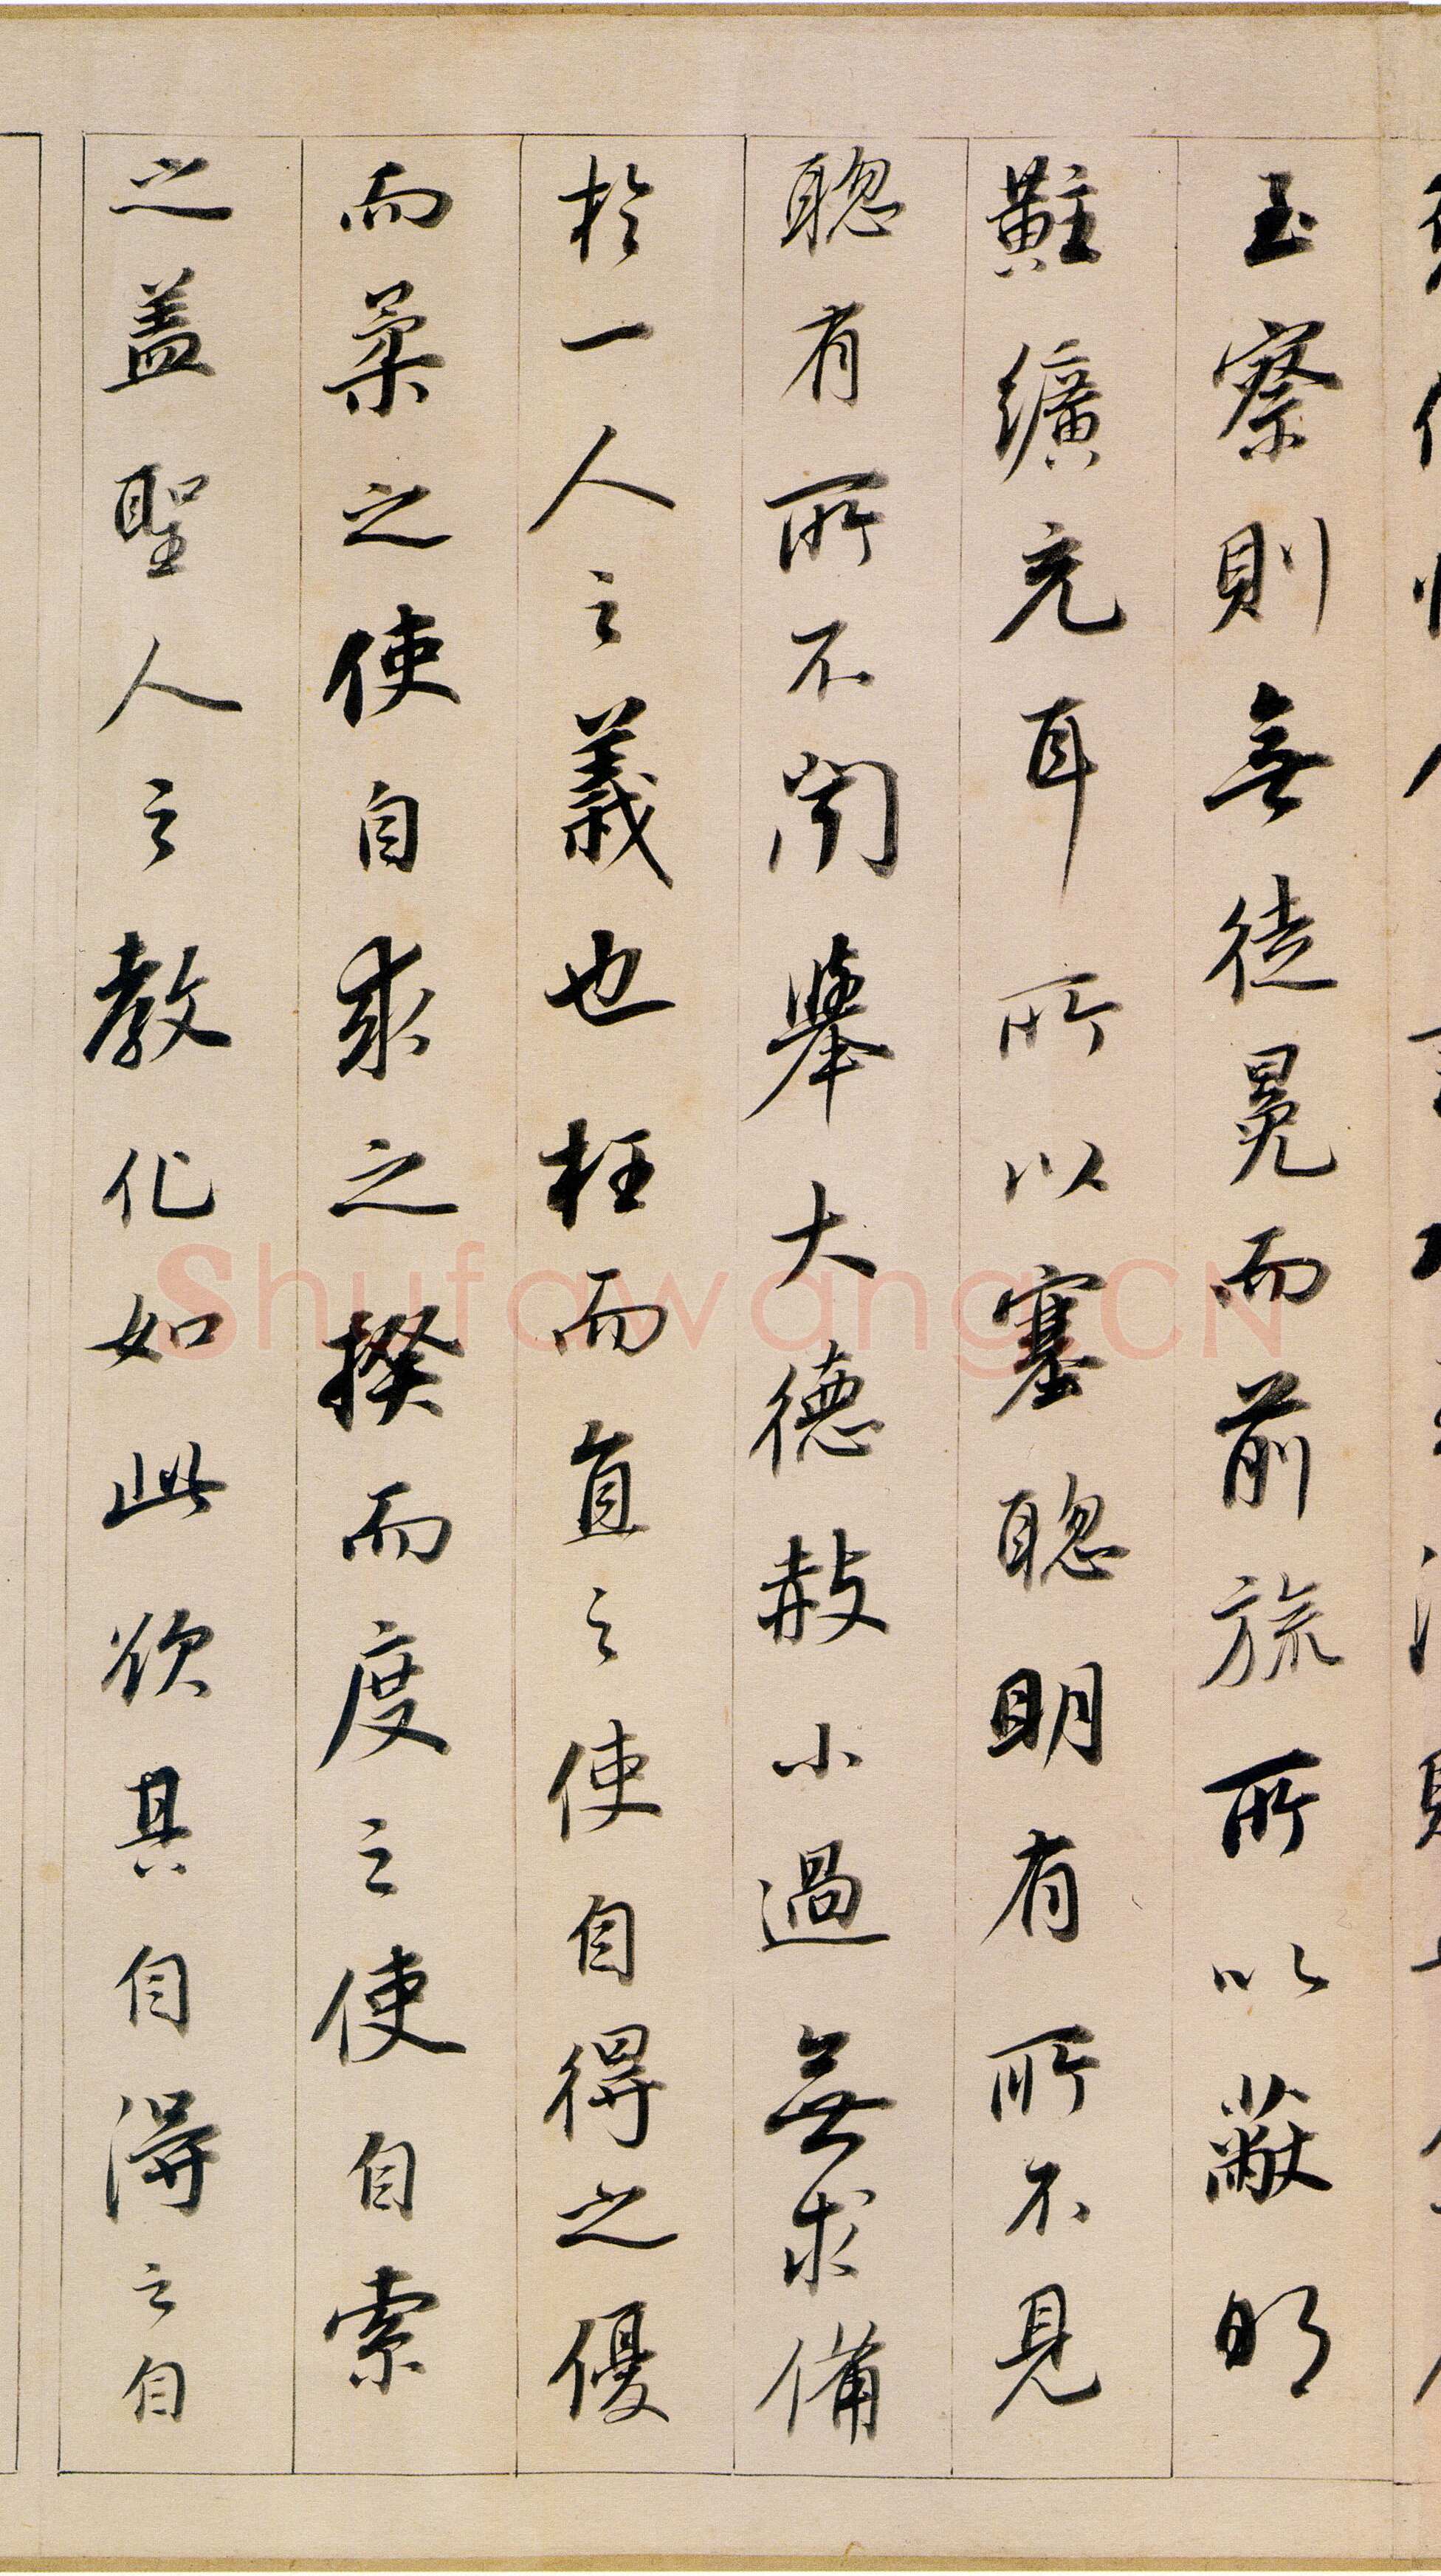 至察則無徒冕而前旒所以蔽明
黈纊充耳所以塞聰明有所不見
聰有所不聞舉大德赦小過無求備
於一人之義也枉而直之使自得之優
而柔之使自求之揆而度之使自索
之蓋聖人之教化如此欲其自得之自
Shufawang.CN